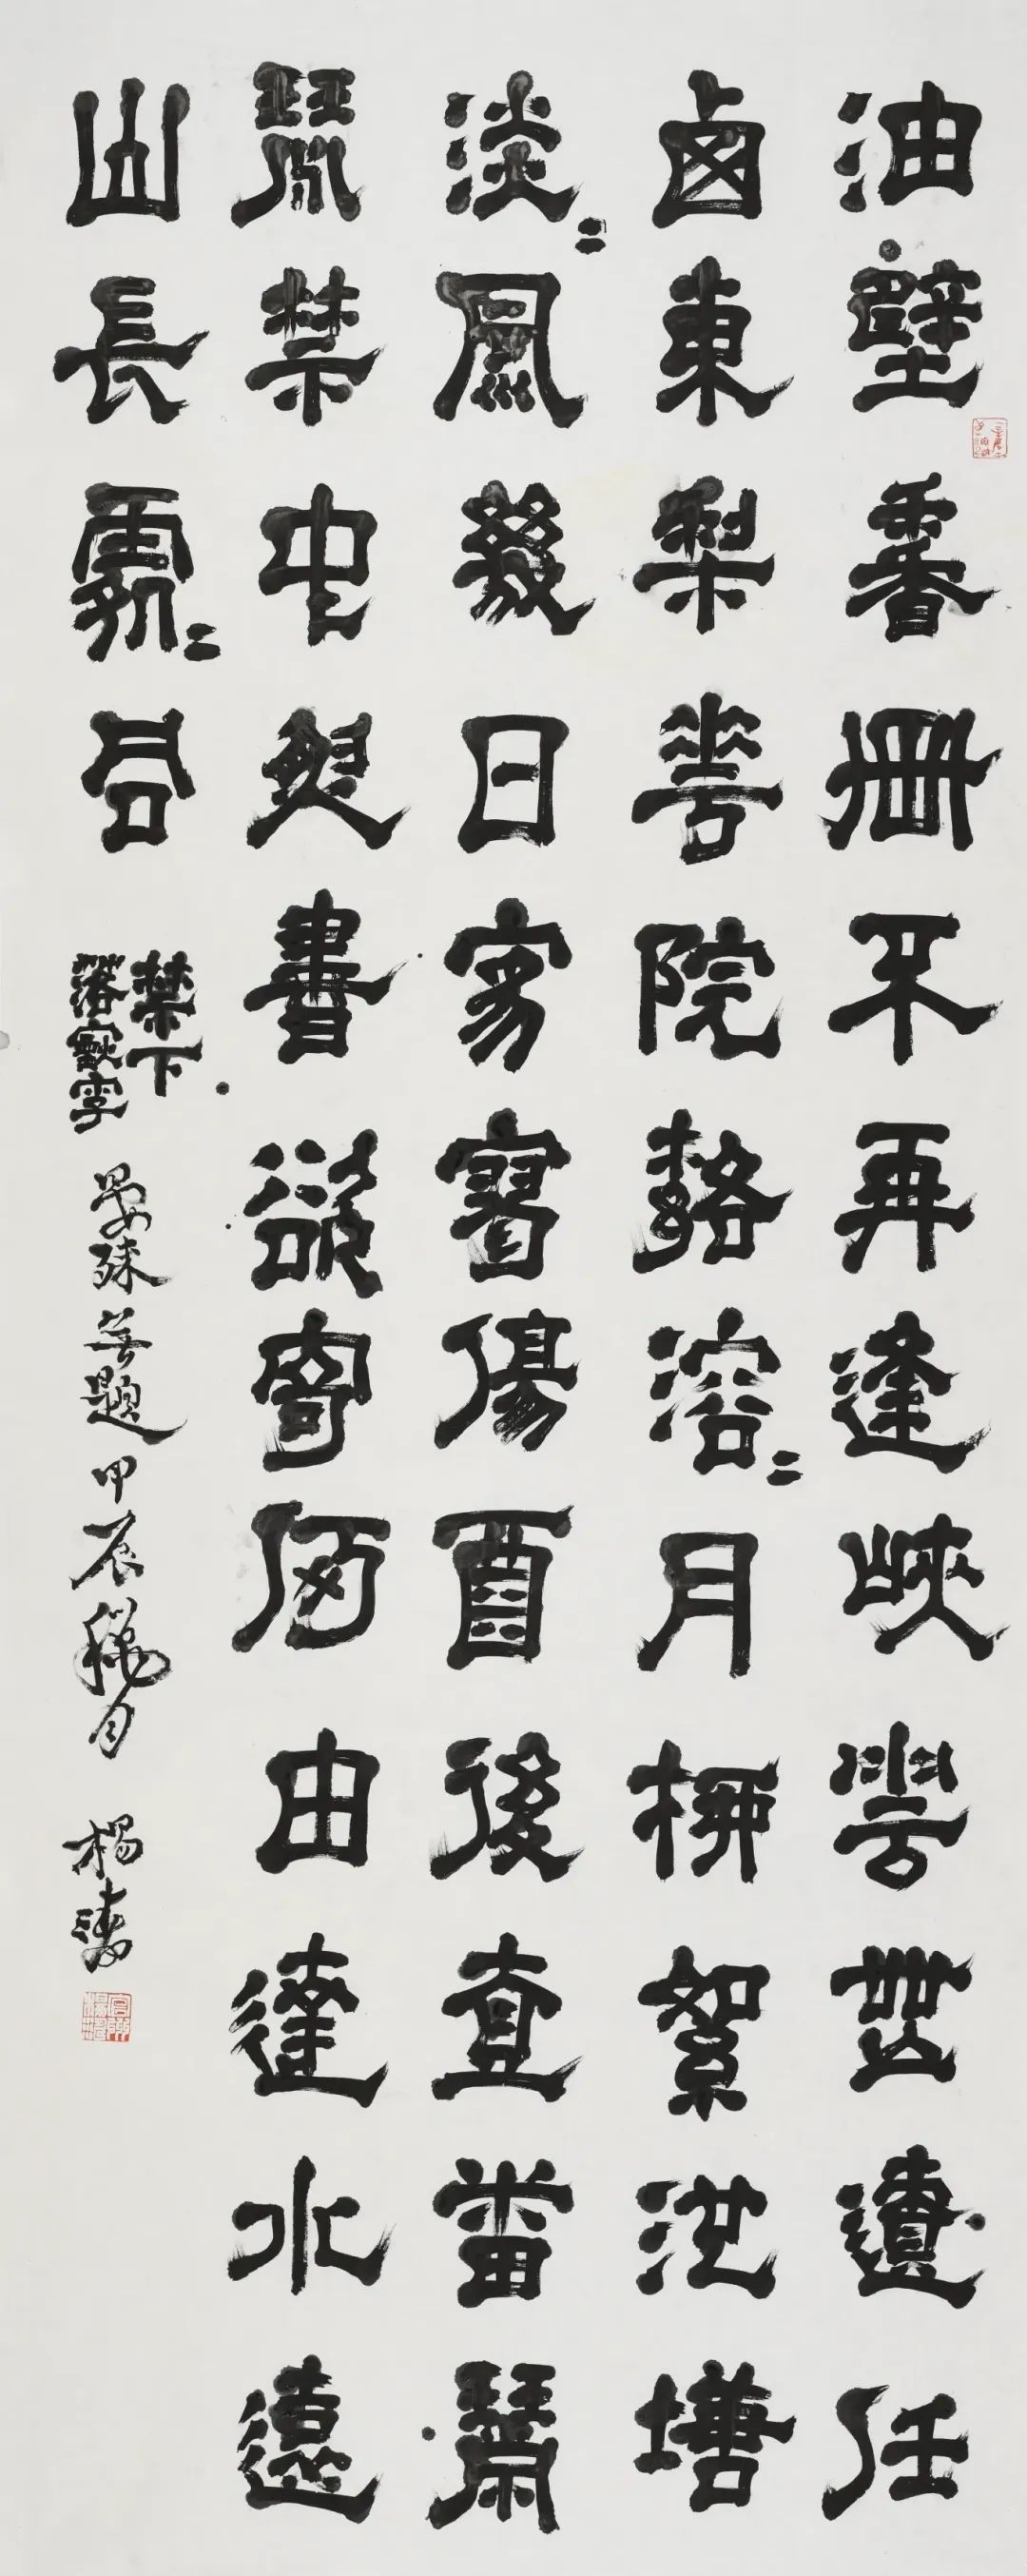 油壁香車不再逢峽雲無跡任
西東梨花院落溶〻月柳絮池塘
淡〻風幾日寂寥傷酒後壹番蕭
瑟禁中魚書欲寄何由達水遠
山長處〻同
禁下
落煙字
晏殊無題甲辰穐月 楊濤